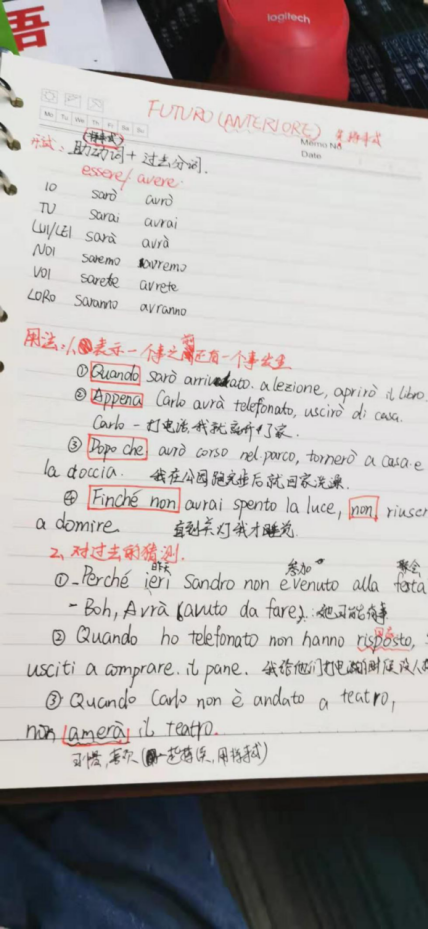 语
logitech
FUTURO (ANTERIORE)
Memo No
Mo Tu We Th Fr Sa Su
Date
形式: 助动词 + 过去分词.
essere/ avere
IO sarò avrò
TU sarai avrai
LUI/LEI sarà avrà
NOI saremo avremo
VOI sarete avrete
LORO saranno avranno
用法: 1. 表示一个事之前还有一个事发生
① Quando sarò arrivato. a lezione, aprirò il libro.
② Appena Carlo avrà telefonato, uscirò di casa.
Carlo 一打电话, 我就离开了家.
③ Dopo che avrò corso nel. parco, tornerò a casa e
la doccia. 我在公园跑完步后就回家洗澡.
④ Finché non avrai spento la luce, non riuscir
a domire. 直到关灯我才睡觉.
2. 对过去的猜测.
昨天 参加 聚会
① - Perché ieri Sandro non è venuto alla festa
- Boh, Avrà avuto da fare: 他可能有事
② Quando ho telefonato non hanno risposto,
usciti a comprare. il pane. 我给他们打电话
③ Quando Carlo non è andato a teatro,
non amerà il teatro.
习惯, 喜欢